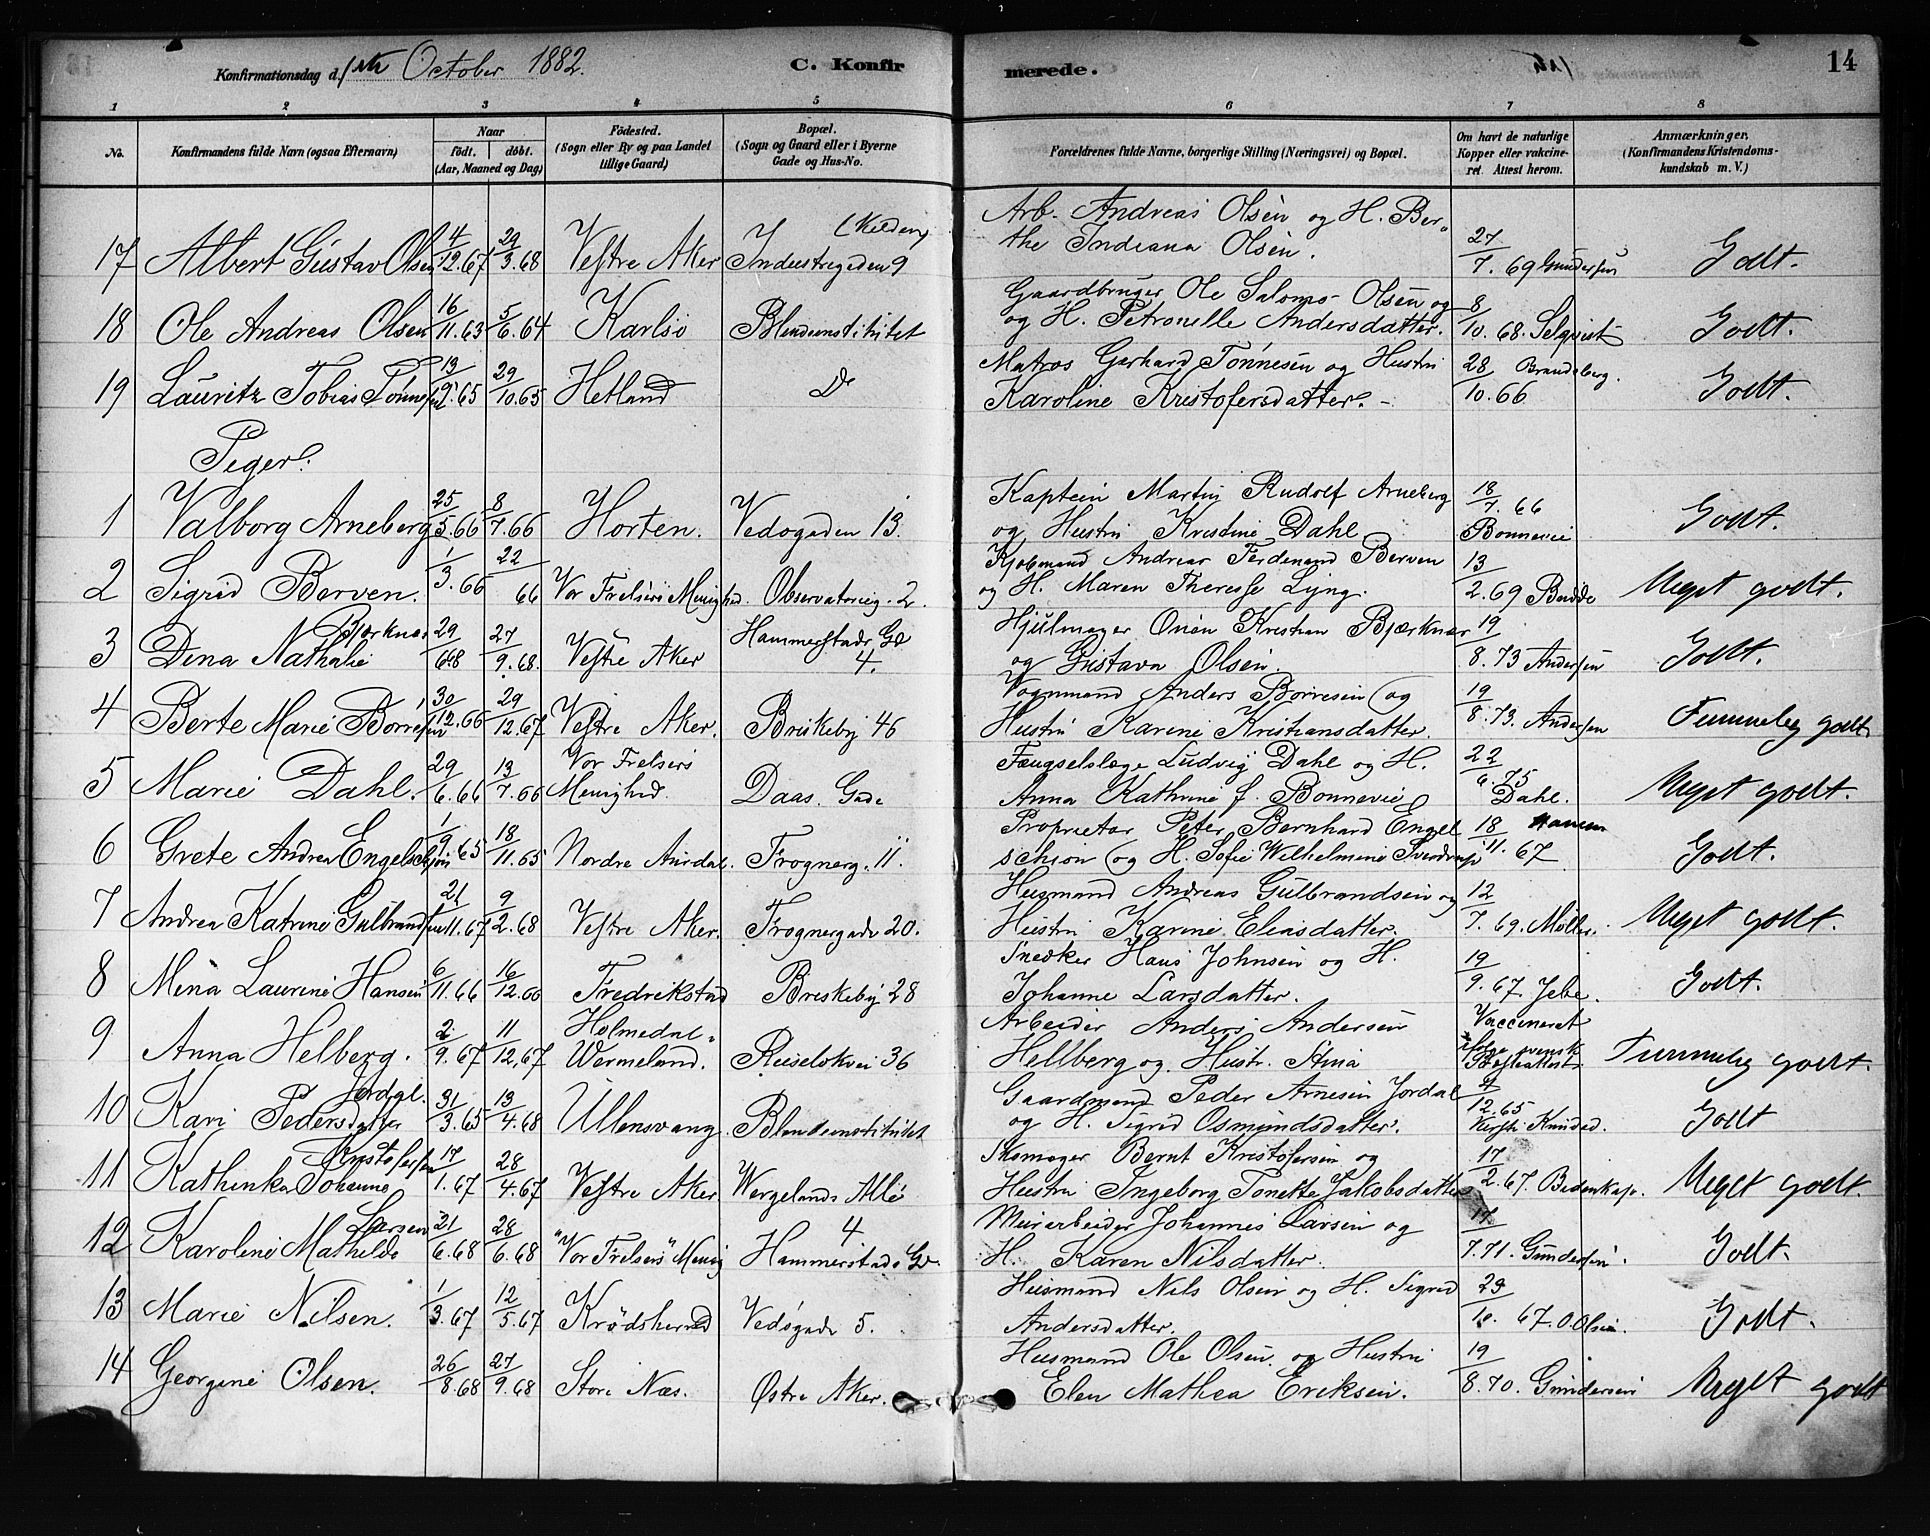 Konfirmationsdag d. 1ste October 1882. C. Konfirmerede. 14
1 2 3 4 5 6 7 8
No. Konfirmandens fulde Navn (ogsaa Efternavn) Naar födt. döbt. (Aar, Maaned og Dag) Födested. (Sogn eller By og paa Landet tillige Gaard) Bopæl. (Sogn og Gaard eller i Byerne Gade og Hus-No. Forældrenes fulde Navne, borgerlige Stilling (Næringsvei) og Bopæl. Om havt de naturlige Kopper eller vaccineret. Attest herom. Anmærkninger. (Konfirmandens Kristendomskundskab m. V.)
17 Albert Gustav Olsen 4/12.67 29/3.68 Vestre Aker Industrigaden 9 Arb. Andreas Olsen og H. Berthe Indiana Olsen. 27/7.69 Gundersen Godt.
18 Ole Andreas Olsen 16/11.63 5/6.64 Karlsö Blindeinstitutet Gaardbruger Ole Salomo Olsen og og H. Petronelle Andersdatter. 8/10.68. Selqvist Godt.
19 Lauritz Tobias Tönnesen 13/9.65 29/10.65 Hetland Do Matros Gerhard Tönnesen og Hustru Karoline Kristofersdatter. 28/10.66 Brandsberg. Godt.
Piger.
1 Valborg Arneberg 25/5.66 8/7.66 Horten. Vedøgaden 13. Kaptein Martin Rudolf Arneberg og Hustru Kristine Dahl 18/7.66 Bonnevie Godt.
2 Sigrid Berven. 1/3.66 22/ 66 Vor Frelsers Menighed. Observatorieg. 2. Kjøbmand Andreas Ferdinand Berven og H. Maren Therese Lyng. 13/2.69 Budde Meget godt.
3 Dina Nathalie Bjerknæs 29/6.68 27/9.68. Vestre Aker Hammerstads Gd 4. Hjulmager Onon Kristian Bjærknæs og Gustava Olsen. 19/8.73 Andersen Godt.
4 Berte Marie Borresen 30/12.66 29/12.67 Vestre Aker. Briskeby 46 Vognmand Anders Borresen og Hustru Karine Kristiansdatter. 19/8.73. Andersen Temmelig godt.
5 Marie Dahl. 29/6.66 13/7.66 Vor Frelsers Menighed. Daas Gade Fængselslæge Ludvig Dahl og H. Anna Kathrine f. Bonnevie 22/6.75 Dahl. Meget godt.
6 Grete Andrea Engelschjøn 1/9.65 18/11.65 Nordre Aurdal. Frognerg. 11. Proprietær Peter Bernhard Engelschion og H. Sofie Wilhelmine Sverdrup 18/11.67 Godt.
7 Andrea Katrine Gulbrandsen 21/11.67 9/2.68 Vestre Aker. Frognergade 20. Husmand Andreas Gulbrandsen og Hustru Karine Eliasdatter. 12/7.69. Møller. Meget godt.
8 Mina Laurine Hansen 6/11.66 16/12.66 Fredrikstad Briskeby 28 Snedker Hans Johnsen og H. Johanne Larsdatter. 19/9.67. Jebe. Godt.
9 Anna Helberg. 2/9.67 11/12.67 Holmedal Wermeland. Ruselokvei 36 Arbeider Anders Andersen Hellberg og Hustr. Stina Vaccineret ifølge svensk Præsteattest Temmelig godt.
10 Kari Pedersdatter Jordal. 31/3.65 13/4.68 Ullensvang. Blindeinstitutet Gaardmand Peder Arnesen Jordal og H. Sigrid Osmundsdatter. 12.65 Kirsti Knudsd. Godt
11 Kathinka Johanne Kristofersen 17/1.67 28/4.67 Vestre Aker Wergelands Allé Skomager Bernt Kristofersen og Hustru Ingeborg Tonette Jakobsdatter 17/2.67. Bidenkap. Meget godt.
12 Karoline Mathilde Larsen 21/6.68 28/6.68 "Vor Frelsers" Menig Hammerstads Gd. 4. Murarbeider Johannes Larsen og H. Karen Nilsdatter. 17/7.71. Gundersen. Godt.
13 Marie Nilsen. 1/3.67 12/5.67 Krödsherred Vedøgade 5. Husmand Nils Olsen og H. Sigrid Andersdatter. 29/10.67. O. Olsen. Godt.
14 Georgine Olsen. 26/8.68 27/9.68 Store Næs. Østre Aker. Husmand Ole Olsen og Hustru Elen Mathea Eriksen. 19/8.70. Gundersen Meget godt